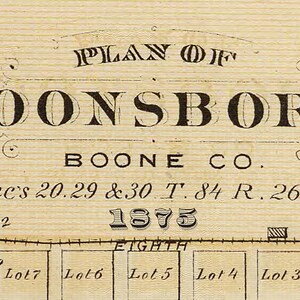 PLAN OF
OONSBOR
BOONE CO.
ec's 20.29 & 30 T. 84 R. 26
1875
2
EIGHTH
Lot 7 Lot 6 Lot 5 Lot 4 Lot 3